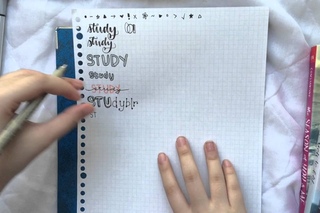 study
study
STUDY
study
STUDY
STUdyblr